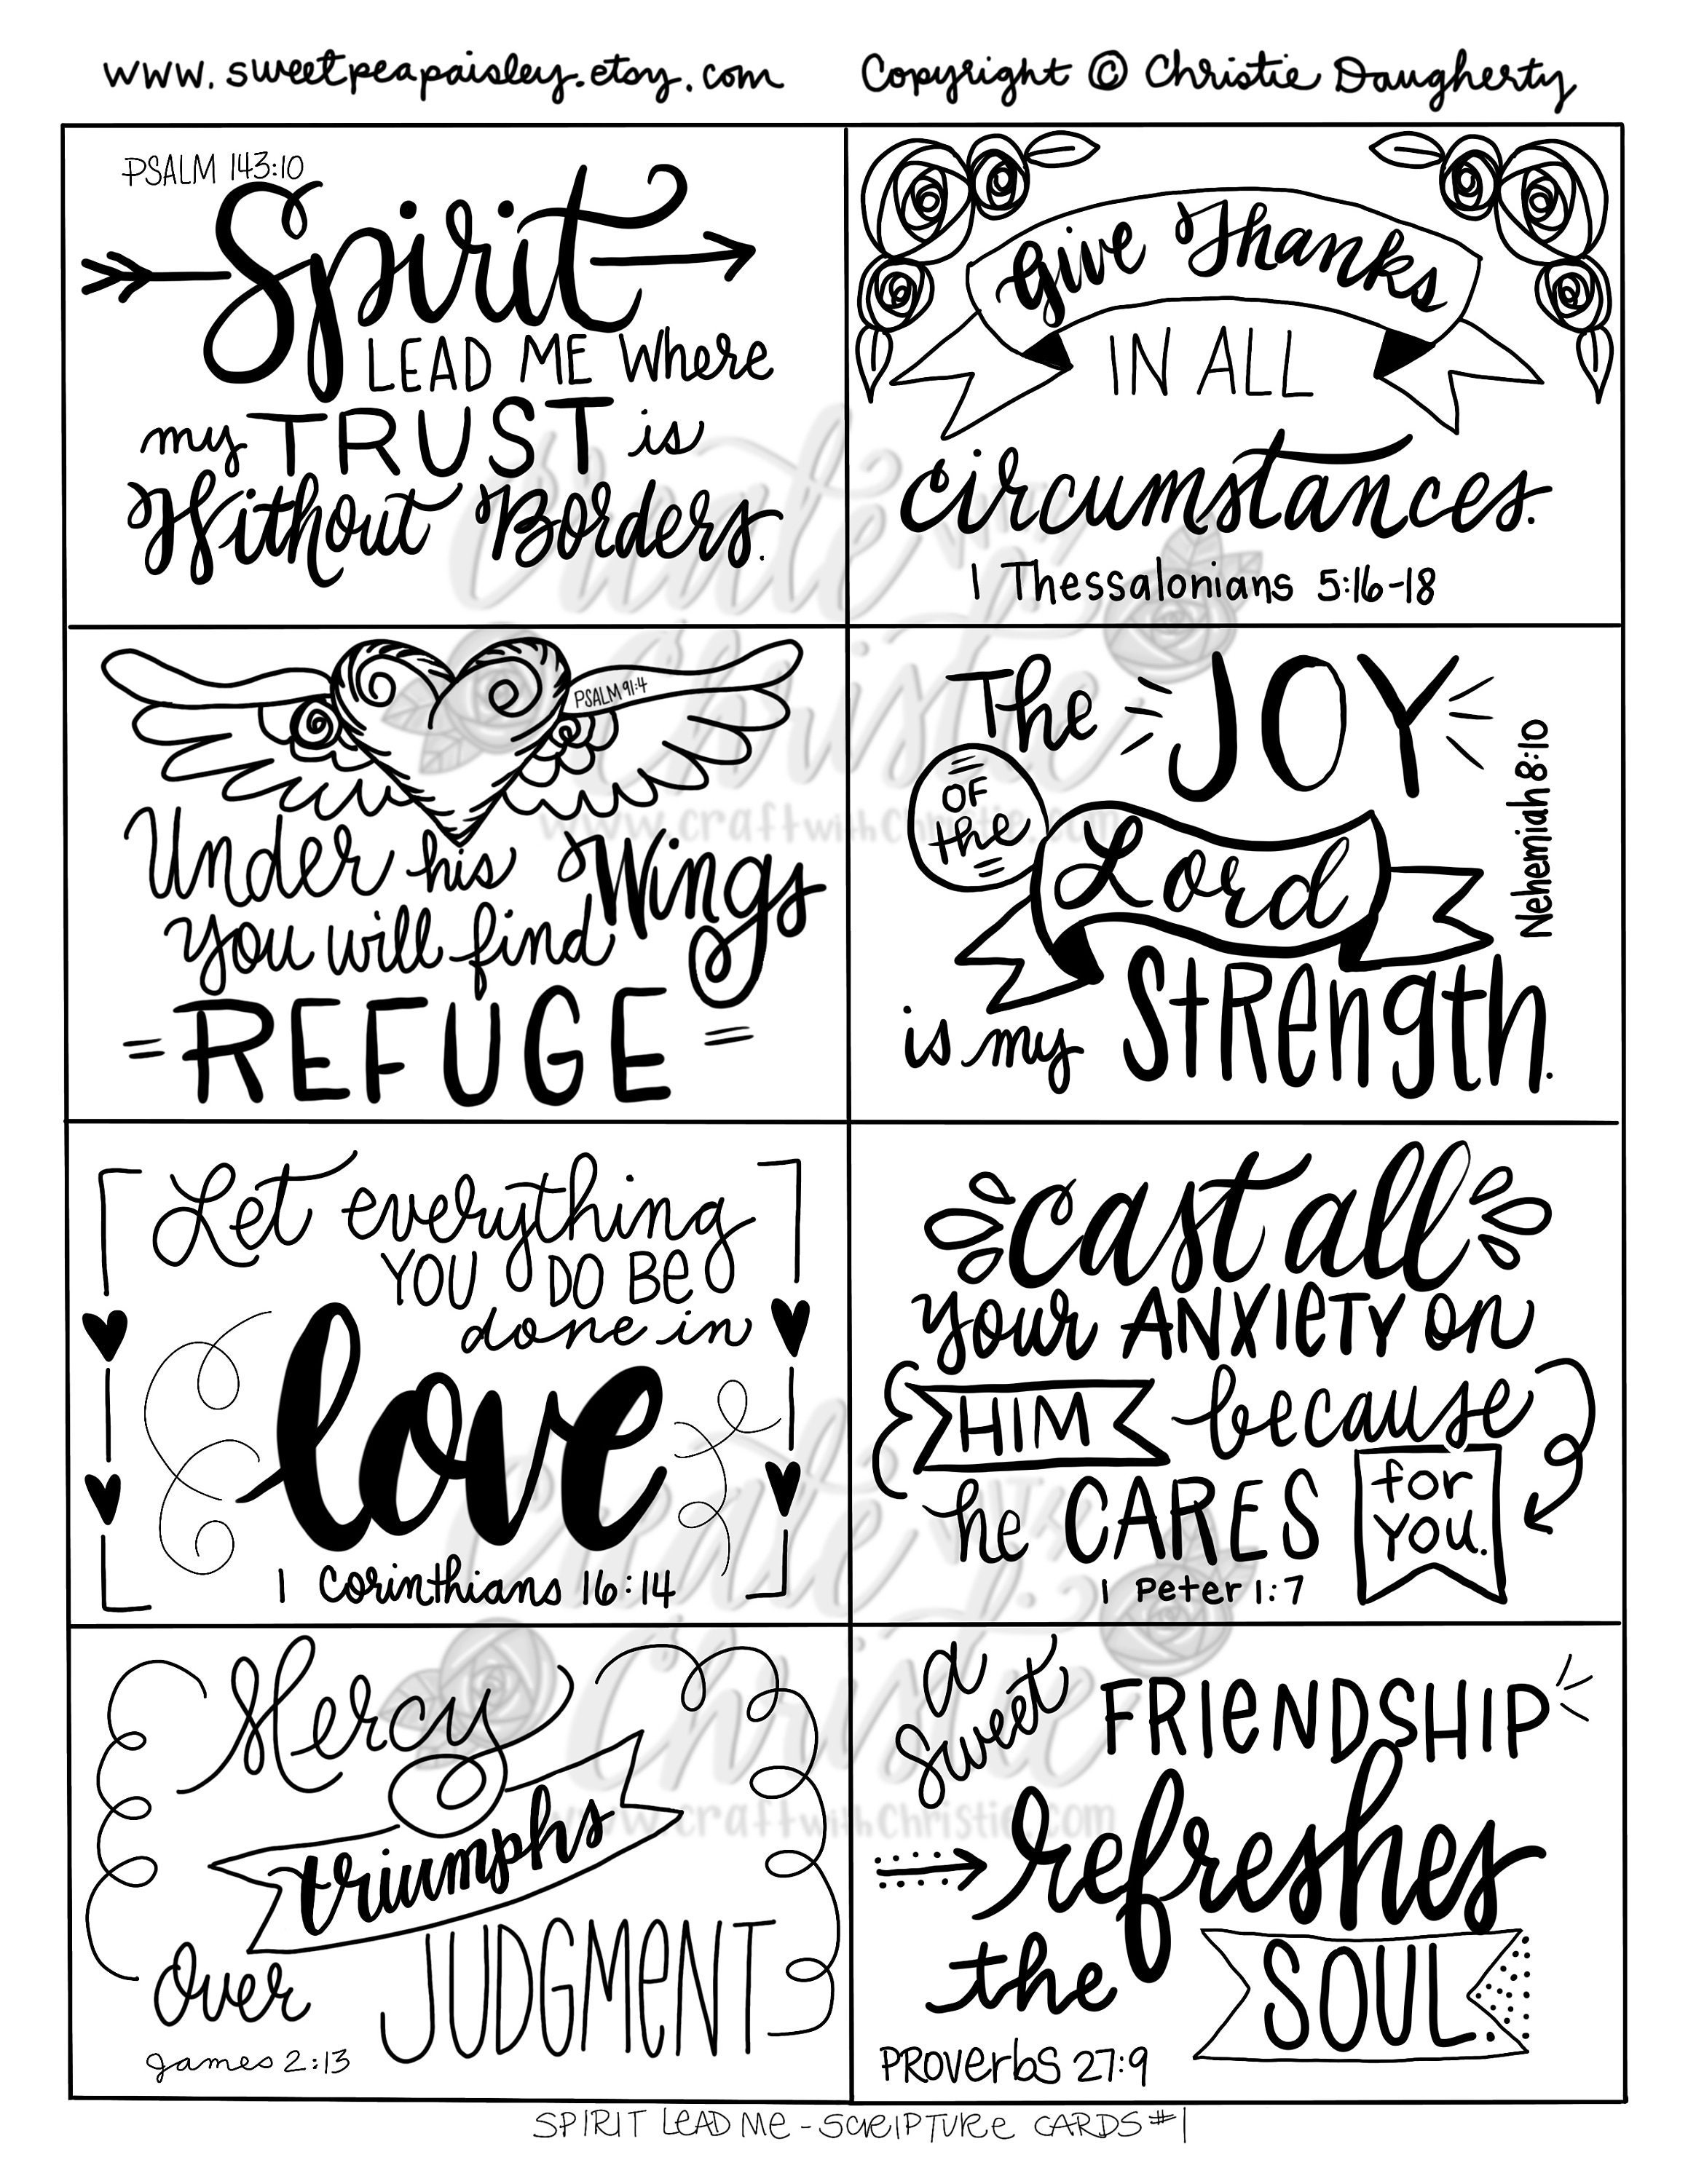 www.sweetpeapaisley.etsy.com Copyright © Christie Daugherty
PSALM 143:10
Spirit
LEAD ME Where
my TRUST is
Without Borders.
Give Thanks
IN ALL
circumstances.
1 Thessalonians 5:16-18
PSALM 91:4
Under his Wings
you will find
REFUGE
The JOY
OF
the
Lord
is my StRength.
Nehemiah 8:10
Let everything
YOU DO Be
done in
love
1 Corinthians 16:14
cast all
your ANXIeTY on
HIM because
he CARES for
YOU.
1 Peter 1:7
Mercy
triumphs
Over JUDGMeNT
James 2:13
a
sweet FRIeNDSHIP
refreshes
the SOUL
PROverbS 27:9
SPIRIT LeAD Me - SCRIPTURe CARDS #1
Create with
Christie
www.craftwithChristie.com
Create with
Christie
www.craftwithChristie.com